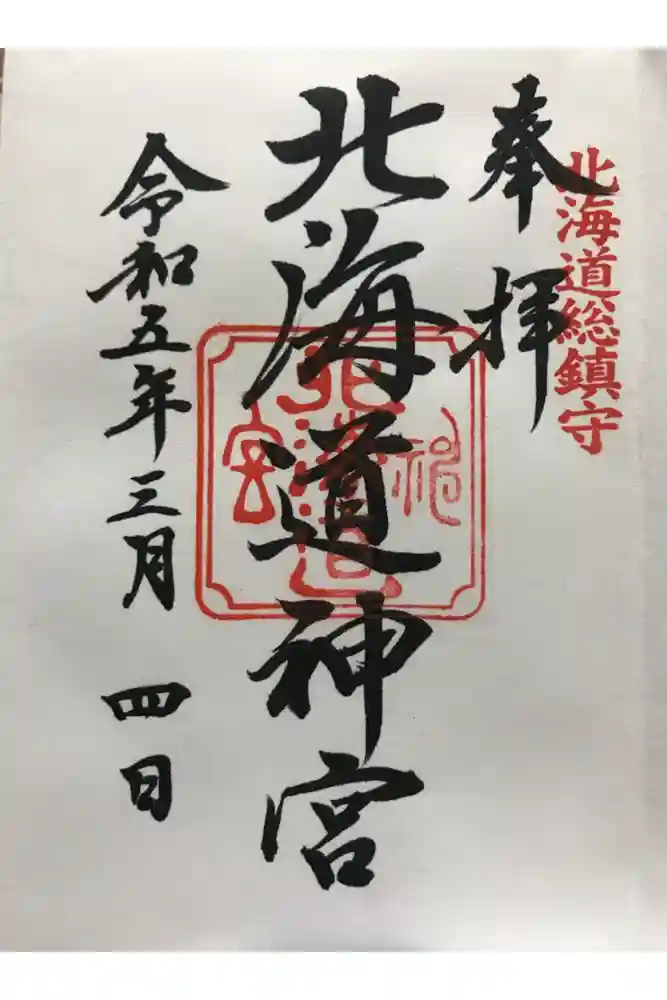 北海道総鎮守
奉拝
北海道神宮
令和五年三月 四日